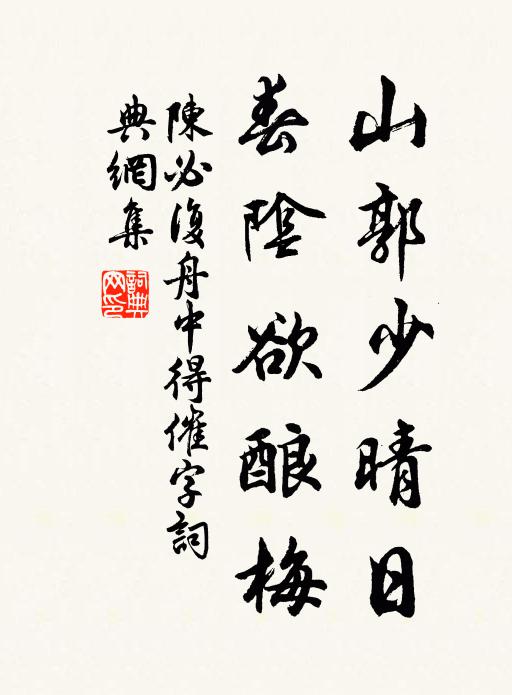 山郭少晴日
春陰欲酿梅
陳必復舟中得催字詞
典網集
詞典网印